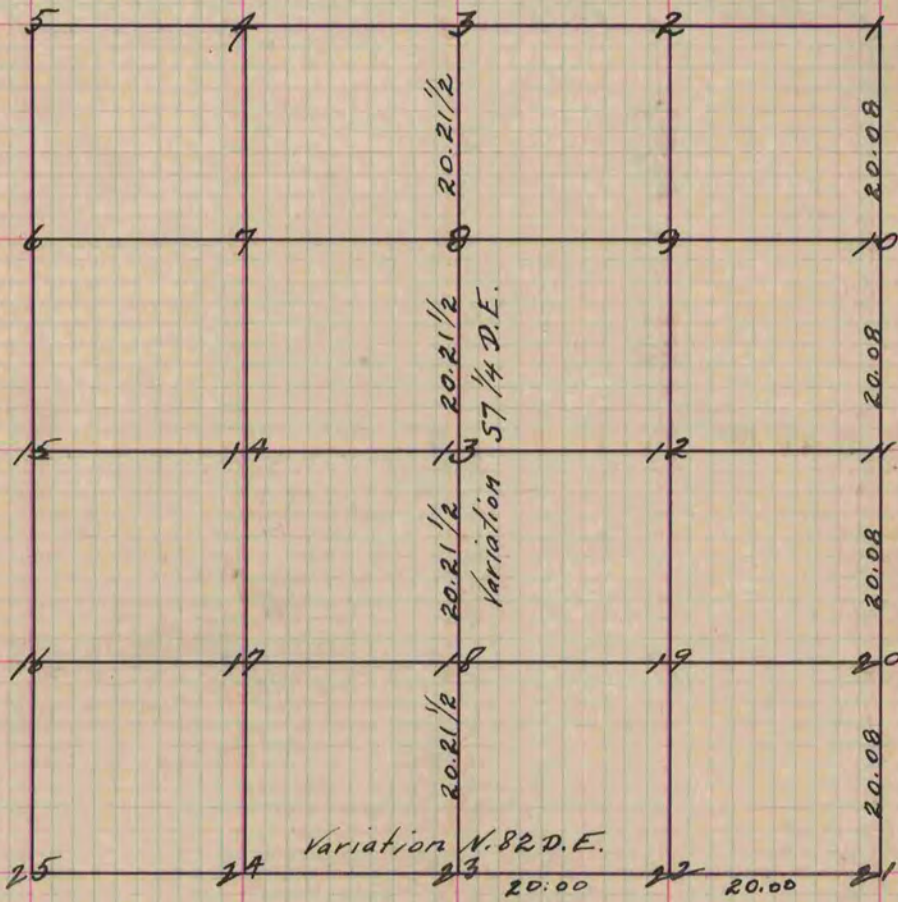 5 4 3 2 1
20.21 1/2
20.08
6 7 8 9 10
20.21 1/2
Variation 57 1/4 D.E.
20.08
15 14 13 12 11
20.21 1/2
20.08
16 17 18 19 20
20.21 1/2
20.08
Variation N. 82 D.E.
25 24 23 22 21
20:00 20.00